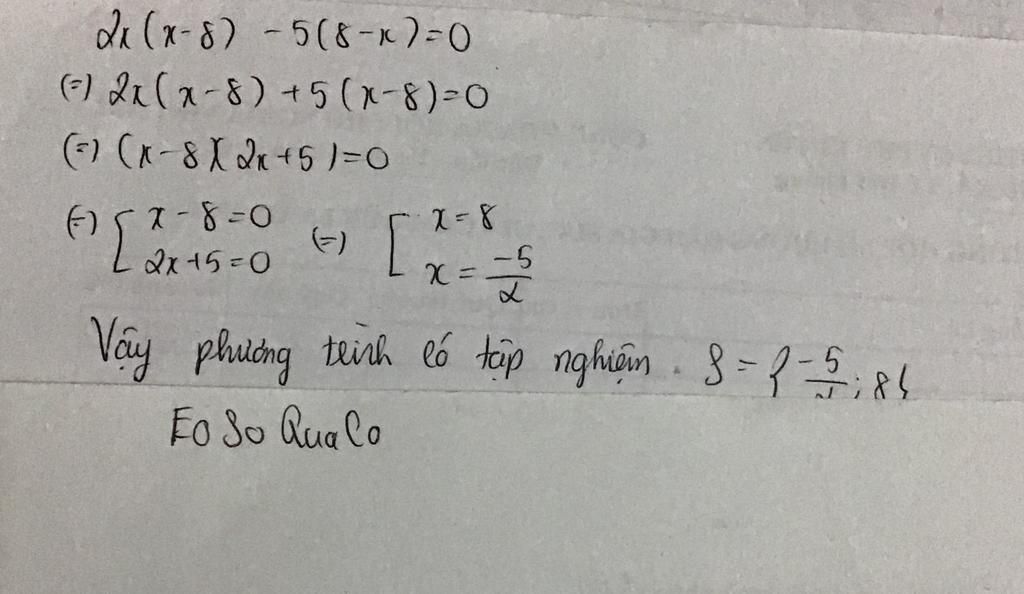 2x(x-8) -5(8-x)=0
(=) 2x(x-8)+5(x-8)=0
(=) (x-8)(2x+5)=0
(=) [ x-8=0 (=) [ x=8
2x+5=0 x = -5/2
Vậy phương trình có tập nghiệm. S={-5/2; 8}
Eo So Qua Co